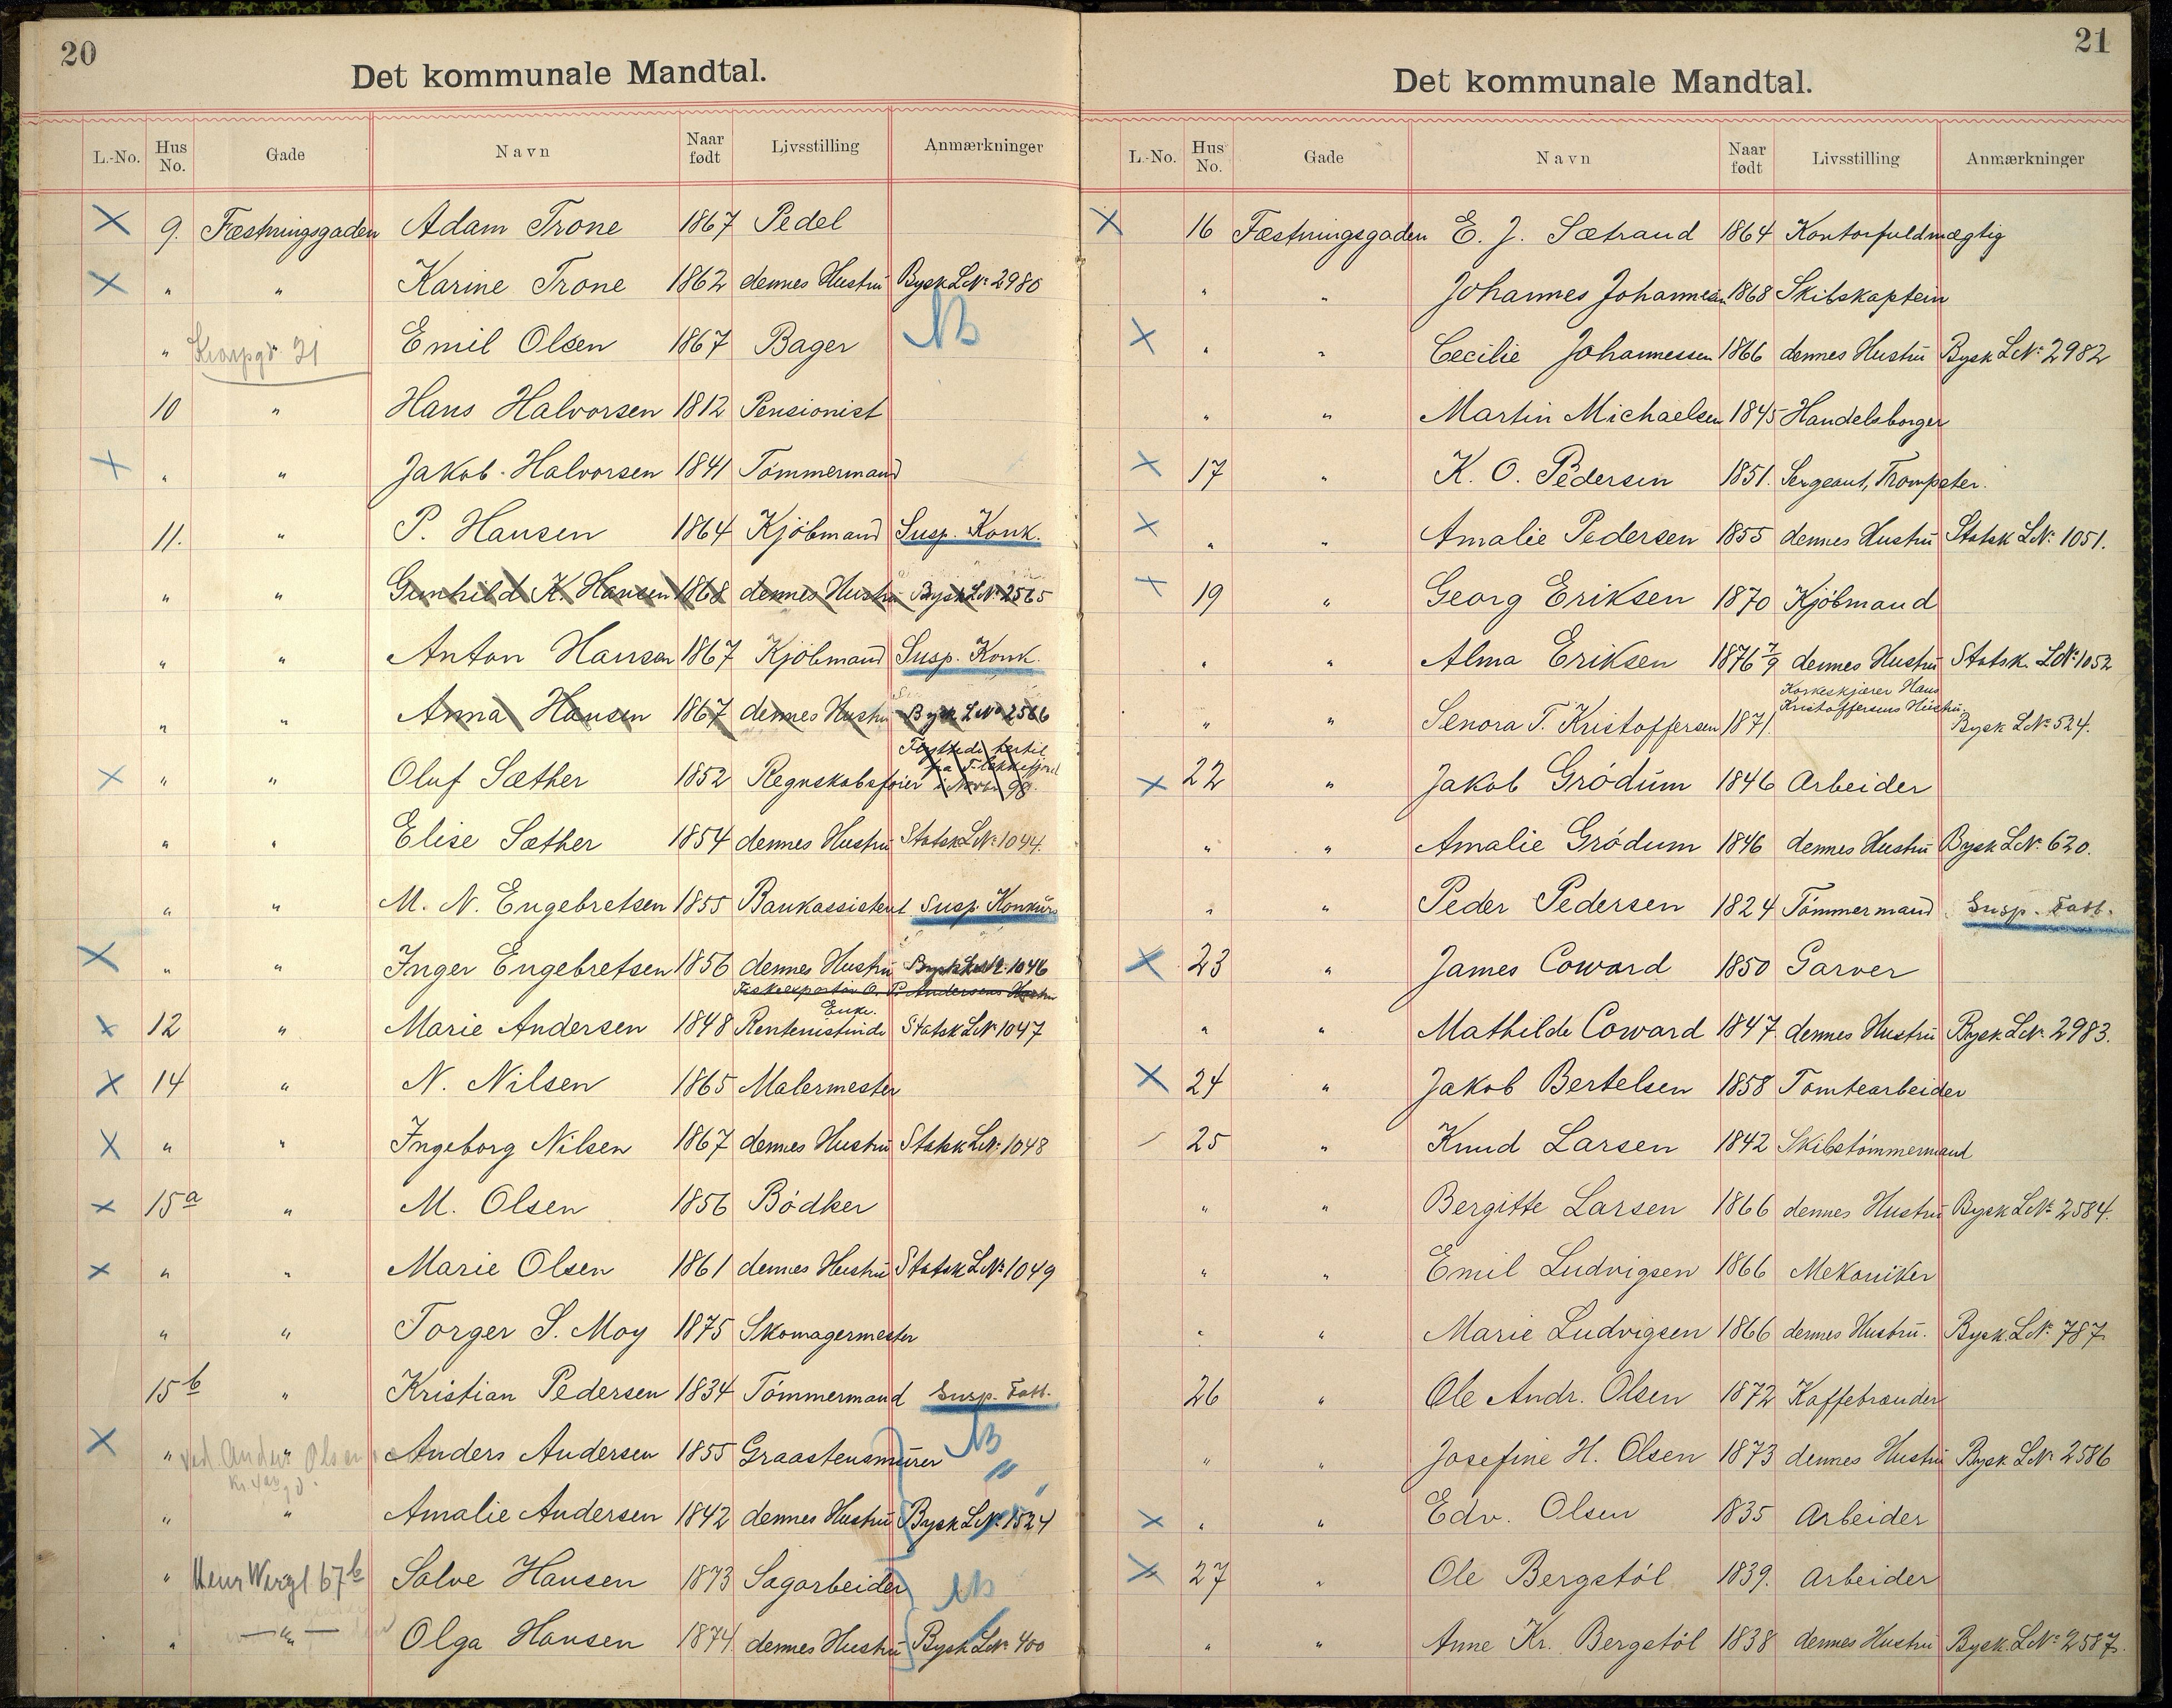 20
Det kommunale Mandtal.
L.-No. Hus No. Gade Navn Naar født Livsstilling Anmærkninger
X 9. Fæstningsgaden Adam Trone 1867 Pedel
X " " Karine Trone 1862 dennes Hustru Bysk LNo 2980
" " 21 Emil Olsen 1867 Bager NB
10 " Hans Halvorsen 1812 Pensionist
X " " Jakob Halvorsen 1841 Tömmermand
11. " P. Hansen 1864 Kjöbmand Susp. Konk.
" " Gunhild K. Hansen 1868 dennes Hustru Bysk LNo 2565
" " Anton Hansen 1867 Kjöbmand Susp. Konk.
" " Anna Hansen 1867 dennes Hustru Bysk LNo 2566
Flyttede hertil
fra Flekkefjord
X " " Oluf Sæther 1852 Regnskabsfører i Novbr 98.
" " Elise Sæther 1854 dennes Hustru Statsk LNo 1044.
" " M. N. Engebretsen 1855 Bankassistent Susp Konkurs
X " " Inger Engebretsen 1856 dennes Hustru LNo 1046
Fiskeexportör O. P. Andersens Hustru
Enke.
X 12 " Marie Andersen 1848 Rentenistinde Statsk LNo 1047
X 14 " N. Nilsen 1865 Malermester
X " " Ingeborg Nilsen 1867 dennes Hustru Statsk LNo 1048
X 15a " M. Olsen 1856 Bödker
X " " Marie Olsen 1861 dennes Hustru Statsk LNo 1049
" " Torger S. Moy 1875 Skomagermester
15b " Kristian Pedersen 1834 Tömmermand Susp. Fatt.
X " ved Anders Olsen Anders Andersen 1855 Graastensmurer NB
" " Amalie Andersen 1842 dennes Hustru Bysk LNo 1524
" Henr Wergl 67b Salve Hansen 1873 Sagarbeider NB
" — " — Olga Hansen 1874 dennes Hustru Bysk LNo 400
21
Det kommunale Mandtal.
L.-No. Hus No. Gade Navn Naar født Livsstilling Anmærkninger
X 16 Fæstningsgaden E. J. Sætrand 1864 Kontorfuldmægtig
" " Johannes Johannessen 1868 Skibskaptein
X " " Cecilie Johannessen 1866 dennes Hustru Bysk LNo 2982
" " Martin Michaelsen 1845 Handelsborger
X 17 " K. O. Pedersen 1851. Sergeant, Trompeter.
X " " Amalie Pedersen 1855 dennes Hustru Statsk LNo 1051.
X 19 " Georg Eriksen 1870 Kjöbmand
" " Alma Eriksen 1876 7/9 dennes Hustru Statsk. LNo 1052
Korkeskjærer Hans
Kristoffersens Hustru.
" " Senora T. Kristoffersen 1871. Bysk LNo 524.
X 22 " Jakob Grödum 1846 Arbeider
" " Amalie Grödum 1846 dennes Hustru Bysk LNo 620.
" " Peder Pedersen 1824 Tömmermand Susp. Fatt.
X 23 " James Coward 1850 Garver
" " Mathilde Coward 1847. dennes Hustru Bysk LNo 2983.
X 24 " Jakob Bertelsen 1858 Tomtearbeider
25 " Knud Larsen 1842 Skibstömmermand
" " Bergitte Larsen 1866 dennes Hustru Bysk LNo 2584.
" " Emil Ludvigsen 1866 Mekaniker
" " Marie Ludvigsen 1866 dennes Hustru. Bysk. LNo 787
26 " Ole Andr. Olsen 1872 Kaffebrænder
" " Josefine H. Olsen 1873 dennes Hustru Bysk LNo 2586
X " " Edv. Olsen 1835 Arbeider
X 27 " Ole Bergstöl 1839. Arbeider
" " Anne Kr. Bergstöl 1838 dennes Hustru Bysk. LNo 2587.